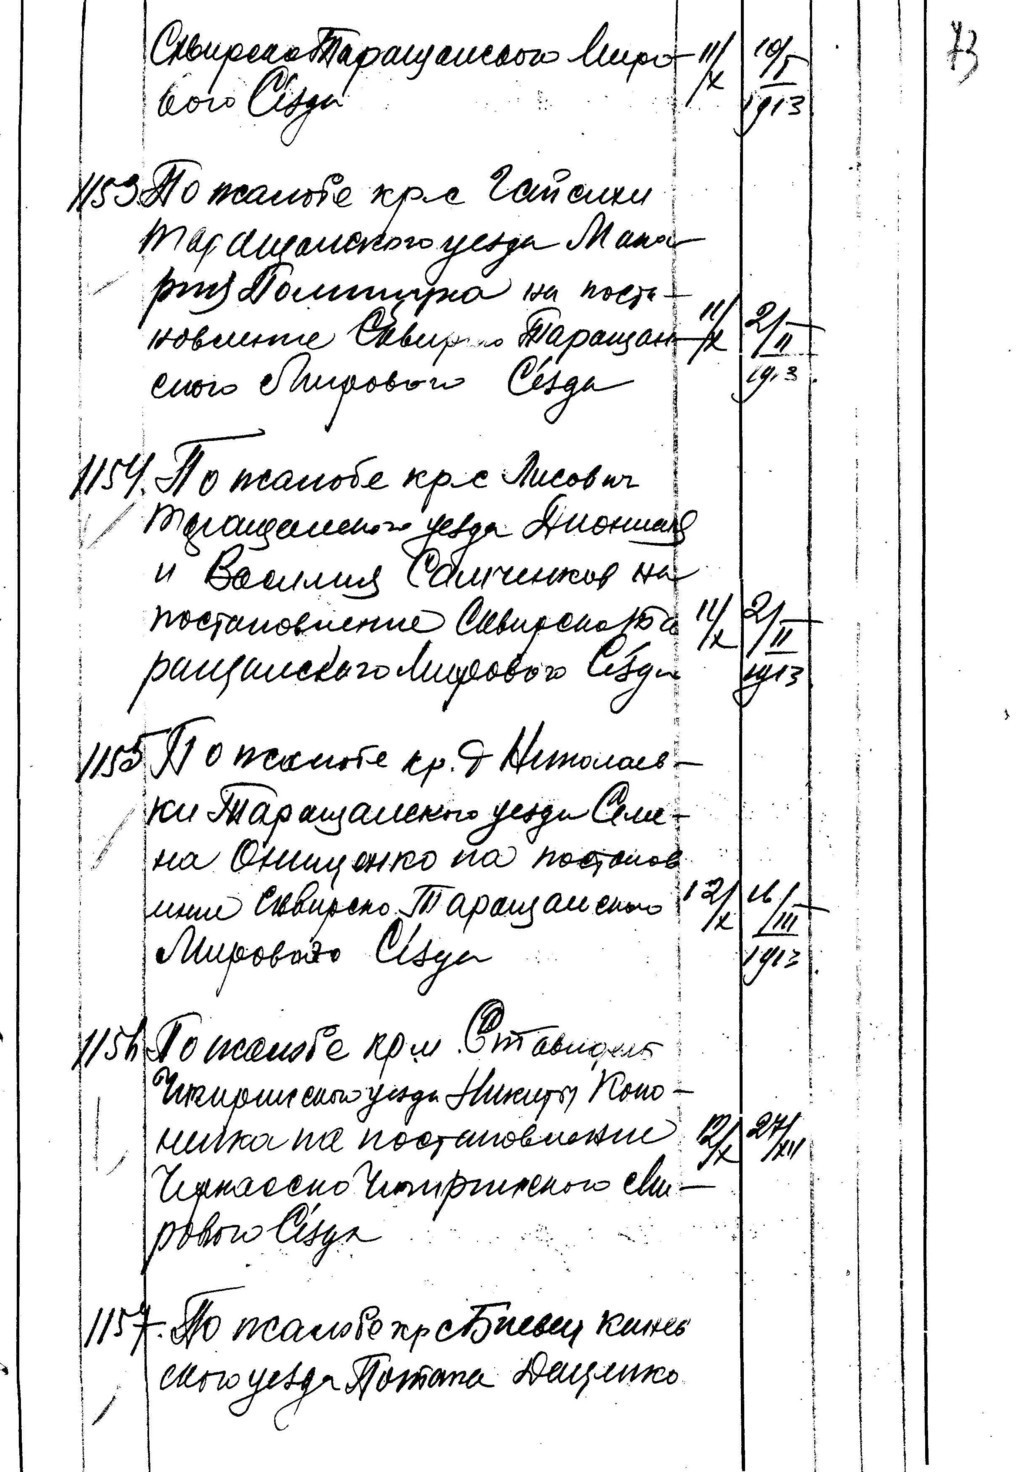 73
Сквирско Таращанского Миро- 11/X 10/I
вого Сѣзда 1913
1153 По жалобе кр. с. Гайсихи
Таращанского уезда Мака-
рия Полищука на поста-
новление Сквирско Таращан- 11/X 2/II
ского Мирового Сѣзда 1913
1154. По жалобе кр. с. Лисович
Таращанского уезда Дионисия
и Василия Самченков на
постановление Сквирско Та 11/X 2/II
ращанского Мирового Сѣзда 1913
1155 По жалобе кр. д Николаев-
ки Таращанского уезда Семе-
на Онищенко на постанов
ление Сквирско Таращанского 12/X 16/III
Мирового Сѣзда 1913
1156 По жалобе кр. м.
Чигиринского уезда Никиты Коно-
ненка на постановление 12/X 27/XII
Черкасско Чигиринского Ми-
рового Сѣзда
1157. По жалобе кр с Канев
ского уезда Потапа Даценко